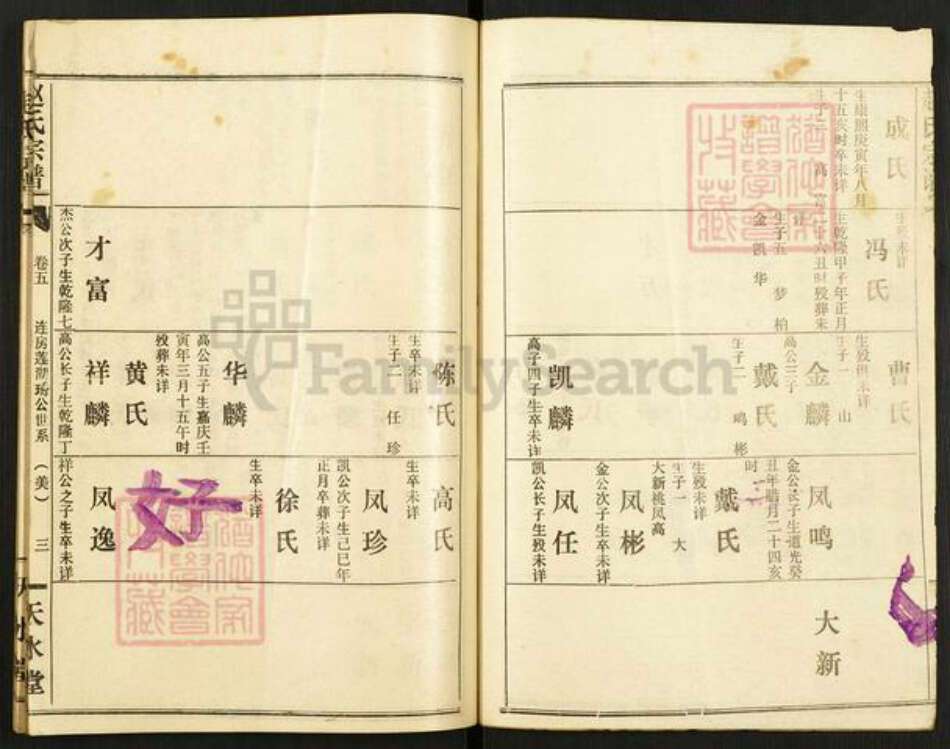 成氏
生康熙庚寅年八月
十五亥时卒未详
生殁未详
冯氏
生乾隆甲子年正月
十六丑时殁葬未
详
生子五 梦柏
金凯华
曹氏
生殁俱未详
生子一 山
金麟
高公三子
戴氏
生子二 鸣彬
凯麟
高子四子生卒未详
凤鸣
金公长子生道光癸
丑年腊月二十四亥
时
戴氏
生殁未详
生子一 大
大新桃凤高
凤彬
金公次子生卒未详
凤任
凯公长子生殁未详
大新
陈氏
生卒未详
生子二 任珍
华麟
高公五子生嘉庆壬
寅年三月十五午时
殁葬未详
黄氏
祥麟
高公长子生乾隆丁
才富
杰公次子生乾隆七
高氏
生卒未详
凤珍
凯公次子生己巳年
正月卒葬未详
徐氏
生卒未详
好子
凤逸
祥公之子生卒未详
赵氏宗谱
卷五
连房莲沏玚公世系
(美)
三
天水堂
FamilySearch